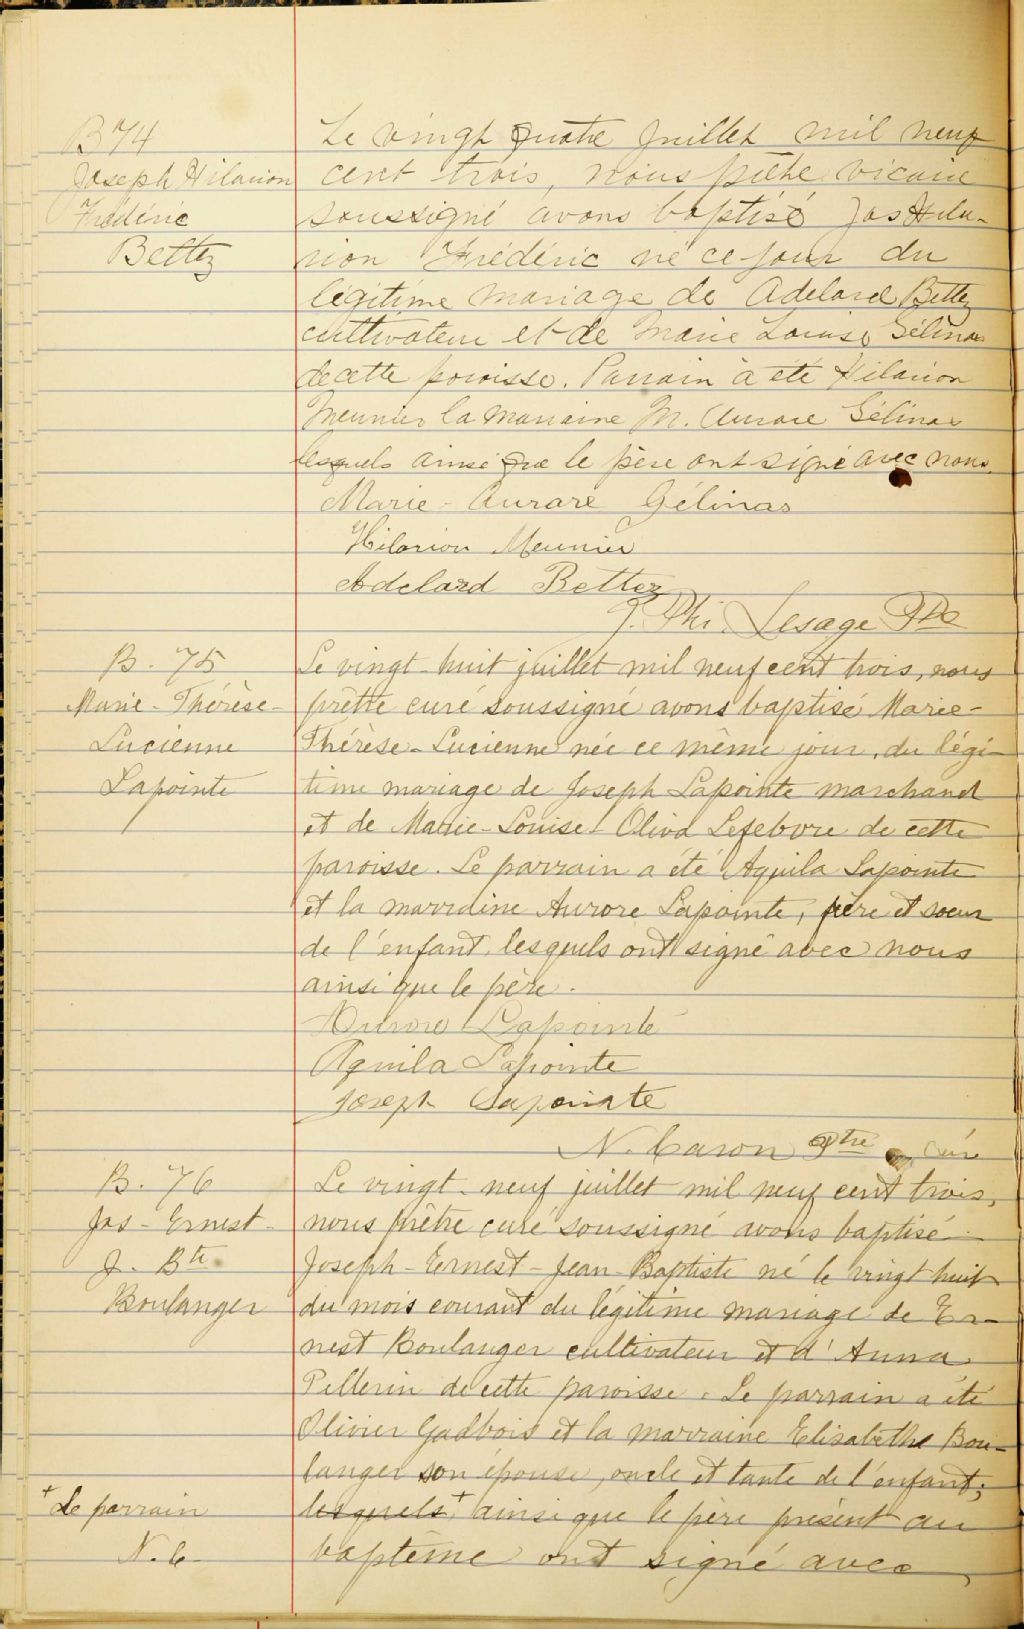 B 74
Joseph Hilarion
Frédéric
Bettez
Le vingt quatre juillet mil neuf
cent trois, nous prêtre vicaire
soussigné avons baptisé Jos Hila-
rion Frédéric né ce jour du
légitime mariage de Adelard Bettez
cultivateur et de Marie Louise Gélinas
de cette paroisse. Parrain a été Hilarion
Meunier la marraine M. Aurore Gélinas
lesquels ainsi que le père ont signé avec nous.
Marie-Aurore Gélinas
Hilarion Meunier
Adelard Bettez
J. Phi. Lesage Ptre
B. 75
Marie-Thérèse-
Lucienne
Lapointe
Le vingt-huit juillet mil neuf cent trois, nous
prêtre curé soussigné avons baptisé Marie-
Thérèse-Lucienne née ce même jour, du légi-
time mariage de Joseph Lapointe marchand
et de Marie-Louise-Oliva Lefebvre de cette
paroisse. Le parrain a été Aquila Lapointe
et la marraine Aurore Lapointe, frère et soeur
de l'enfant, lesquels ont signé avec nous
ainsi que le père.
Aurore Lapointe
Aquila Lapointe
Joseph Lapointe
N. Caron Ptre curé
B. 76
Jos-Ernest-
J. Bte
Boulanger
Le vingt-neuf juillet mil neuf cent trois,
nous prêtre curé soussigné avons baptisé
Joseph-Ernest-Jean-Baptiste né le vingt huit
du mois courant du légitime mariage de Er-
nest Boulanger cultivateur et d'Anna
Pellerin de cette paroisse. Le parrain a été
Olivier Gadbois et la marraine Elisabeth Bou-
langer son épouse, oncle et tante de l'enfant;
lesquels + ainsi que le père présent au
baptême ont signé avec
+ Le parrain
N. C.